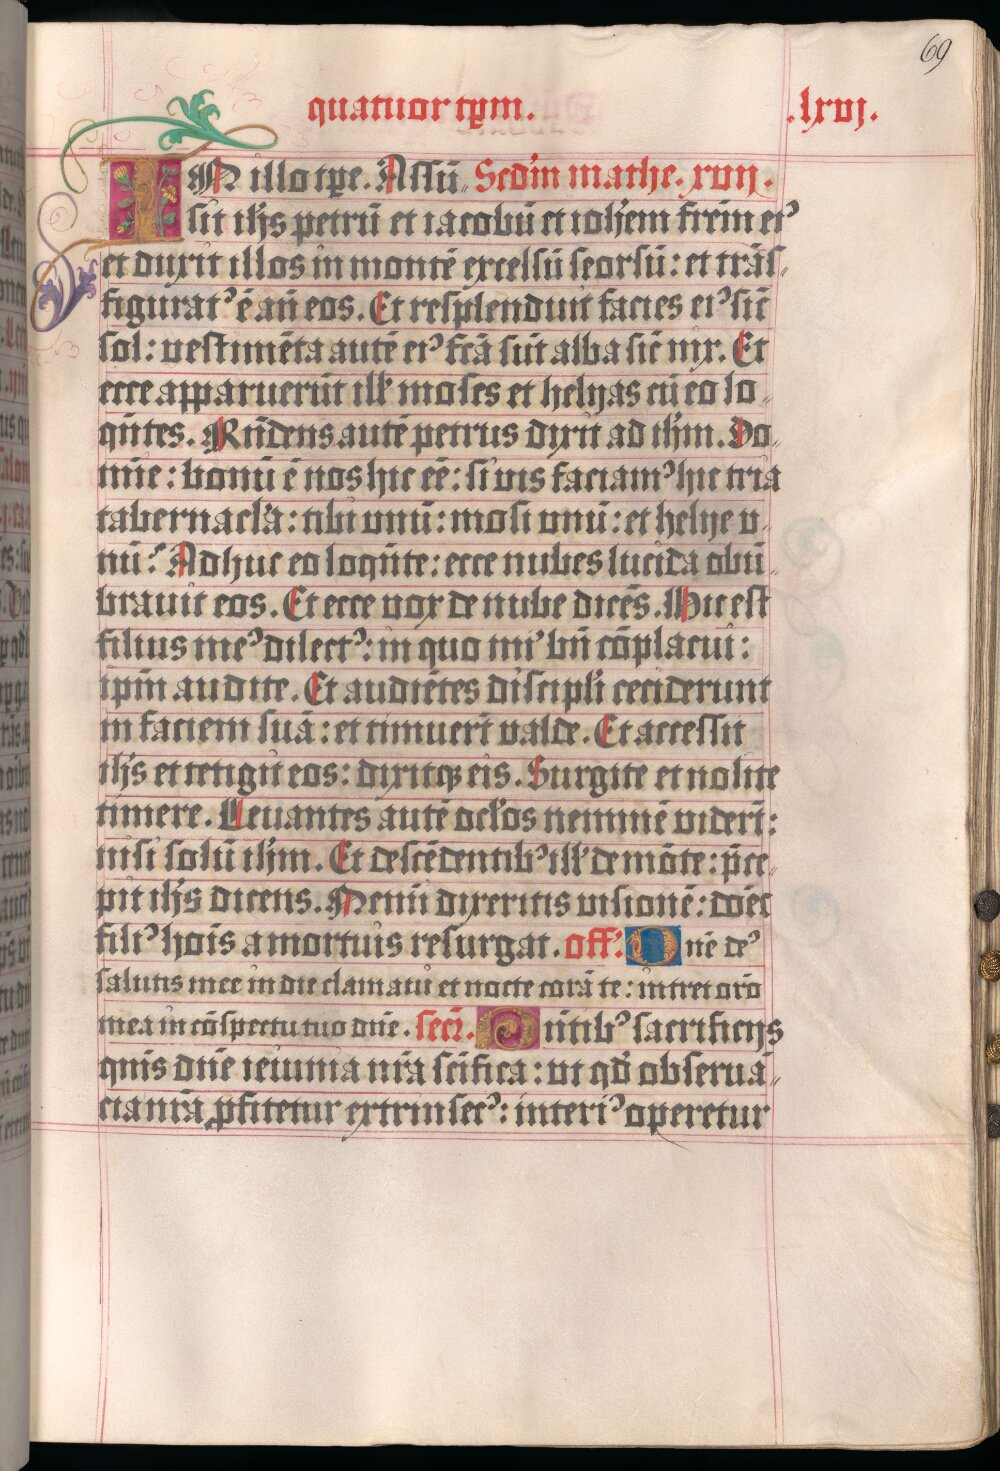 69
quatuor tp̄m. .lxvj.
IN illo tp̄e. Assū- Scd'm mathe. xvij.
sit ih's petrū et iacobū et ioh'em frēm eiꝰ
et duxit illos in montē excelsū seorsū: et trās-
figuratꝰ ē an̄ eos. Et resplenduit facies eiꝰ sic̄
sol: vestimēta autē eiꝰ fc̄a sūt alba sic̄ nix. Et
ecce apparuerūt ill' moses et helyas cū eo lo-
qūtes. Rn̄dens autē petrus dixit ad ih'm. Do-
mīe: bonū ē nos hic eē: si vis faciamꝰ hic tria
tabernacl'a: tibi vnū: mosi vnū: et helye v-
nū. Adhuc eo loqūte: ecce nubes lucida obū-
bravit eos. Et ecce vox de nube dicēs. Hic est
filius meꝰ dilectꝰ: in quo mi' bn̄ cōplacui:
ip̄m audite. Et audiētes discipl'i ceciderunt
in faciem suā: et timuer̄t valde. Et accessit
ih's et tetigit eos: dixitqꝫ eis. Surgite et nolite
timere. Levantes autē ocl'os neminē vider̄t:
nisi solū ih'm. Et descēdentibꝰ ill' de mōte: p̄ce-
pit ih's dicens. Nemī dixeritis visionē: donec
filiꝰ hoīs a mortuis resurgat. off': Dn̄e deꝰ
salutis mee in die clamavi et nocte corā te: intret orō
mea in cōspectu tuo dn̄e. secr̄. P̄ntibꝰ sacrificijs
qūs dn̄e ieiunia nr̄a scīfica: vt qd̄ observā-
cia nr̄a ꝓfitetur extrinsecꝰ: interiꝰ operetur